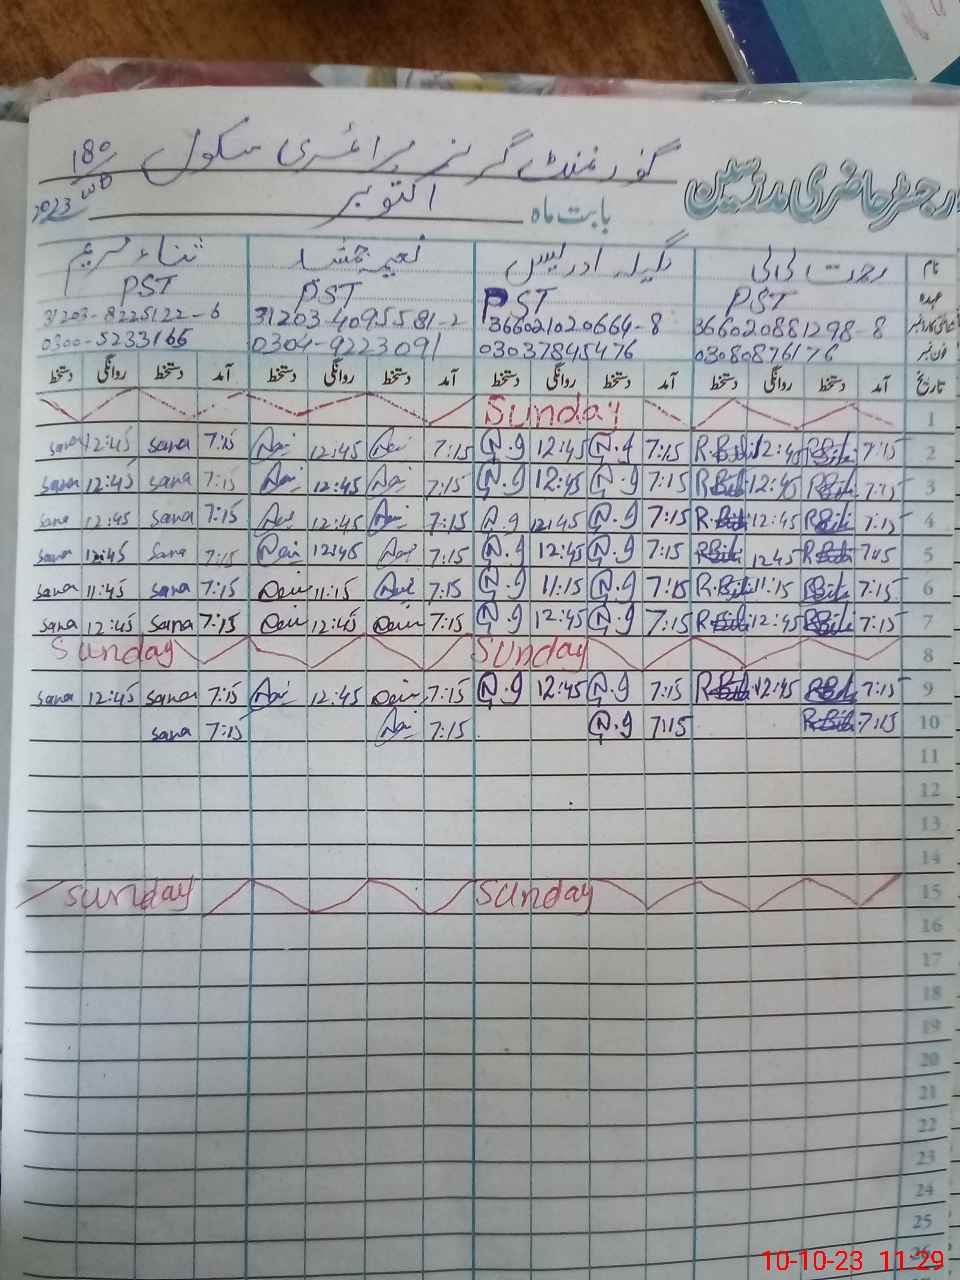 رجسٹر حاضری مدرسین گورنمنٹ گرلز پرائمری سکول 180
بابت ماہ اکتوبر 2023 WB
نام
عہدہ PST PST PST PST
366020881298-8 366021020664-8 31203-4095581-2 31203-8225122-6
فون نمبر 03080876176 03037845476 0304-9223091 0300-5233166
تاریخ آمد دستخط روانگی دستخط آمد دستخط روانگی دستخط آمد دستخط روانگی دستخط آمد دستخط روانگی دستخط
1 Sunday
2 7:15 R.Bibi 12:45 R.Bibi 7:15 N.g 12:45 N.g 7:15 12:45 7:15 sana 12:45 sana
3 7:15 R.Bibi 12:45 R.Bibi 7:15 N.g 12:45 N.g 7:15 12:45 7:15 sana 12:45 sana
4 7:15 R.Bibi 12:45 R.Bibi 7:15 N.g 12:45 N.g 7:15 12:45 7:15 sana 12:45 sana
5 7:15 R.Bibi 12:45 R.Bibi 7:15 N.g 12:45 N.g 7:15 12:45 7:15 sana 12:45 sana
6 7:15 R.Bibi 11:15 R.Bibi 7:15 N.g 11:15 N.g 7:15 11:15 7:15 sana 11:45 sana
7 7:15 R.Bibi 12:45 R.Bibi 7:15 N.g 12:45 N.g 7:15 12:45 7:15 sana 12:45 sana
8 Sunday Sunday
9 7:15 R.Bibi 12:45 R.Bibi 7:15 N.g 12:45 N.g 7:15 12:45 7:15 sana 12:45 sana
10 7:15 R.Bibi 7:15 N.g 7:15 7:15 sana
11
12
13
14
15 Sunday Sunday
16
17
18
19
20
21
22
23
24
25
26
10-10-23 11:29